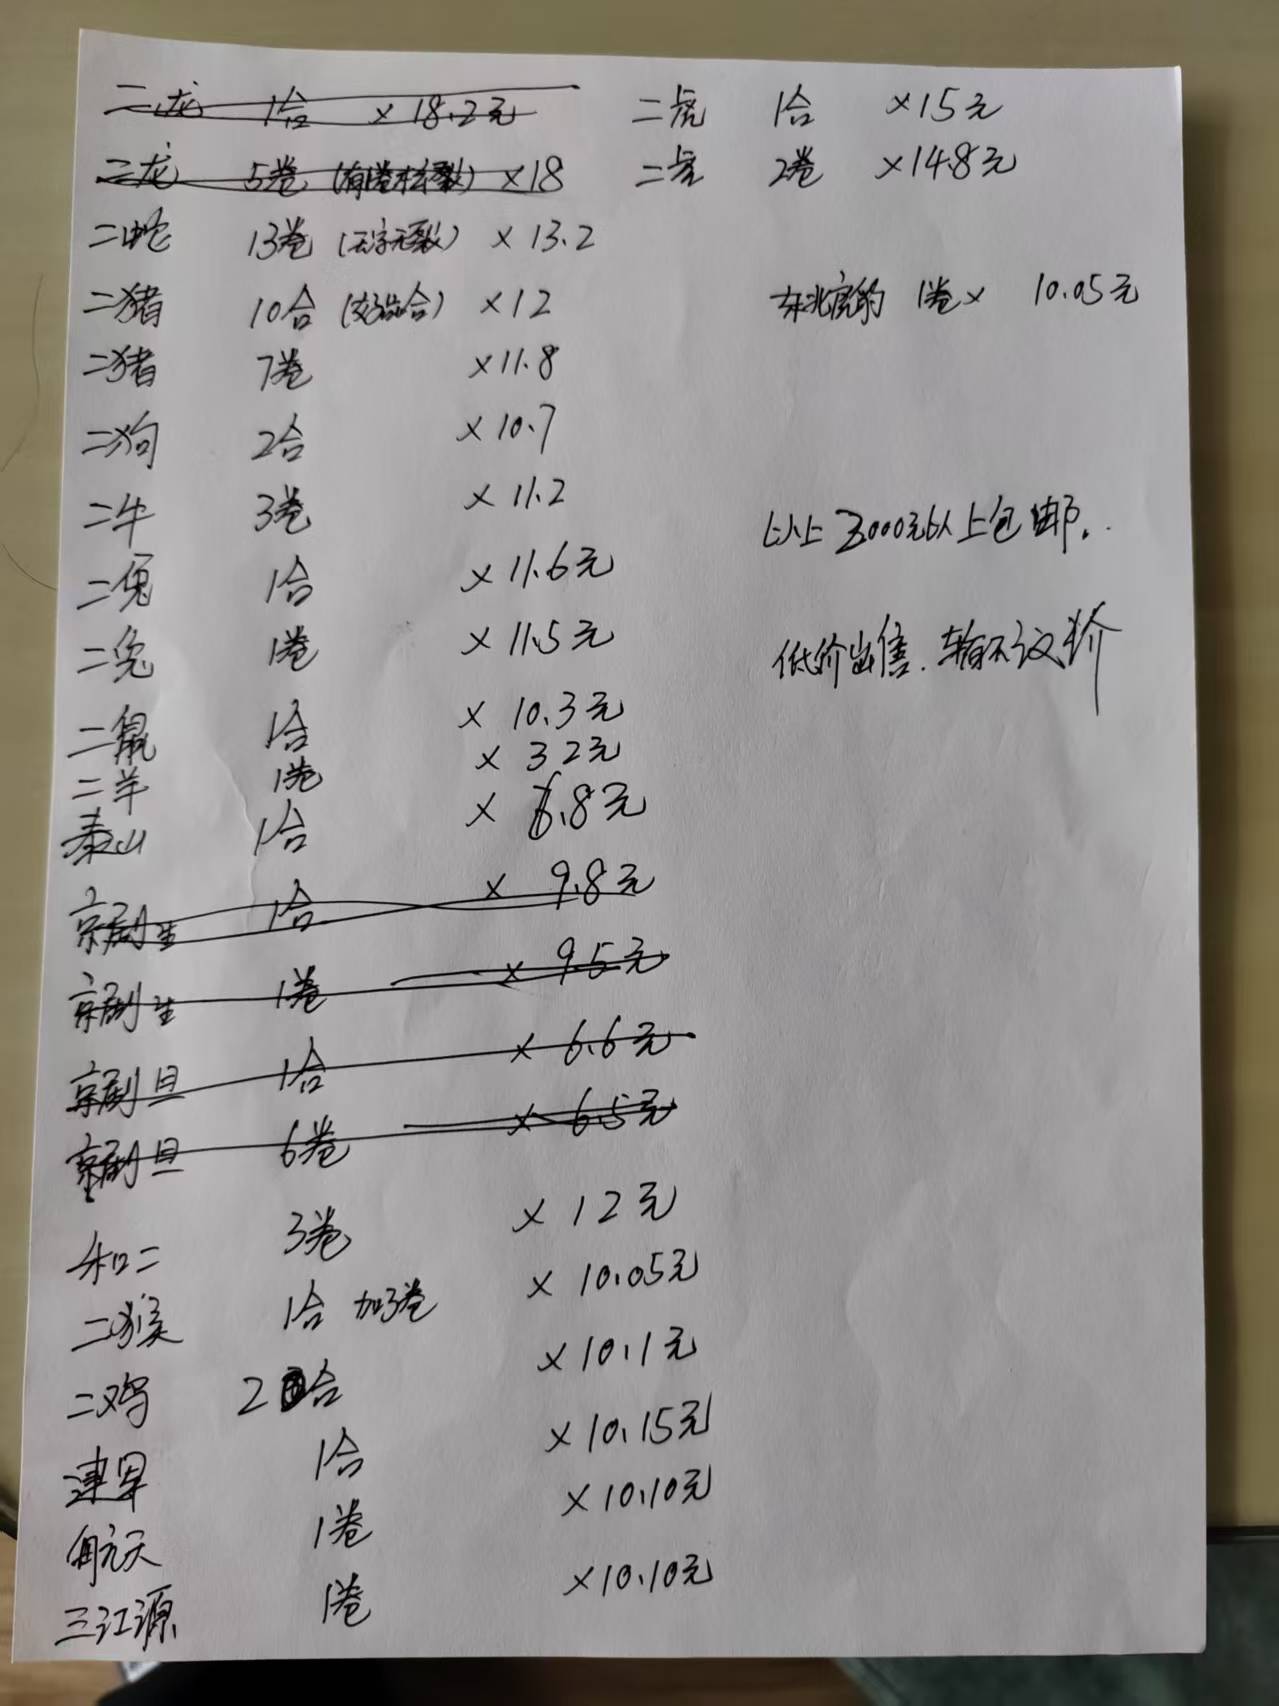 二龙 1合 ×18.2元
二龙 5卷 ×18
二蛇 13卷 (无字无裂) ×13.2
二猪 10合 ×12
二猪 7卷 ×11.8
二狗 2合 ×10.7
二牛 3卷 ×11.2
二兔 1合 ×11.6元
二兔 1卷 ×11.5元
二鼠 1合 ×10.3元
二羊 1卷 ×32元
泰山 1合 ×6.8元
京剧生 1合 ×9.8元
京剧生 1卷 ×9.5元
京剧旦 1合 ×6.6元
京剧旦 6卷 ×6.5元
和二 3卷 ×12元
二猴 1合 加3卷 ×10.05元
二鸡 2合 ×10.1元
建军 1合 ×10.15元
航天 1卷 ×10.10元
三江源 1卷 ×10.10元
二虎 1合 ×15元
二虎 2卷 ×14.8元
东北虎豹 1卷× 10.05元
以上3000元以上包邮.
低价出售.概不议价